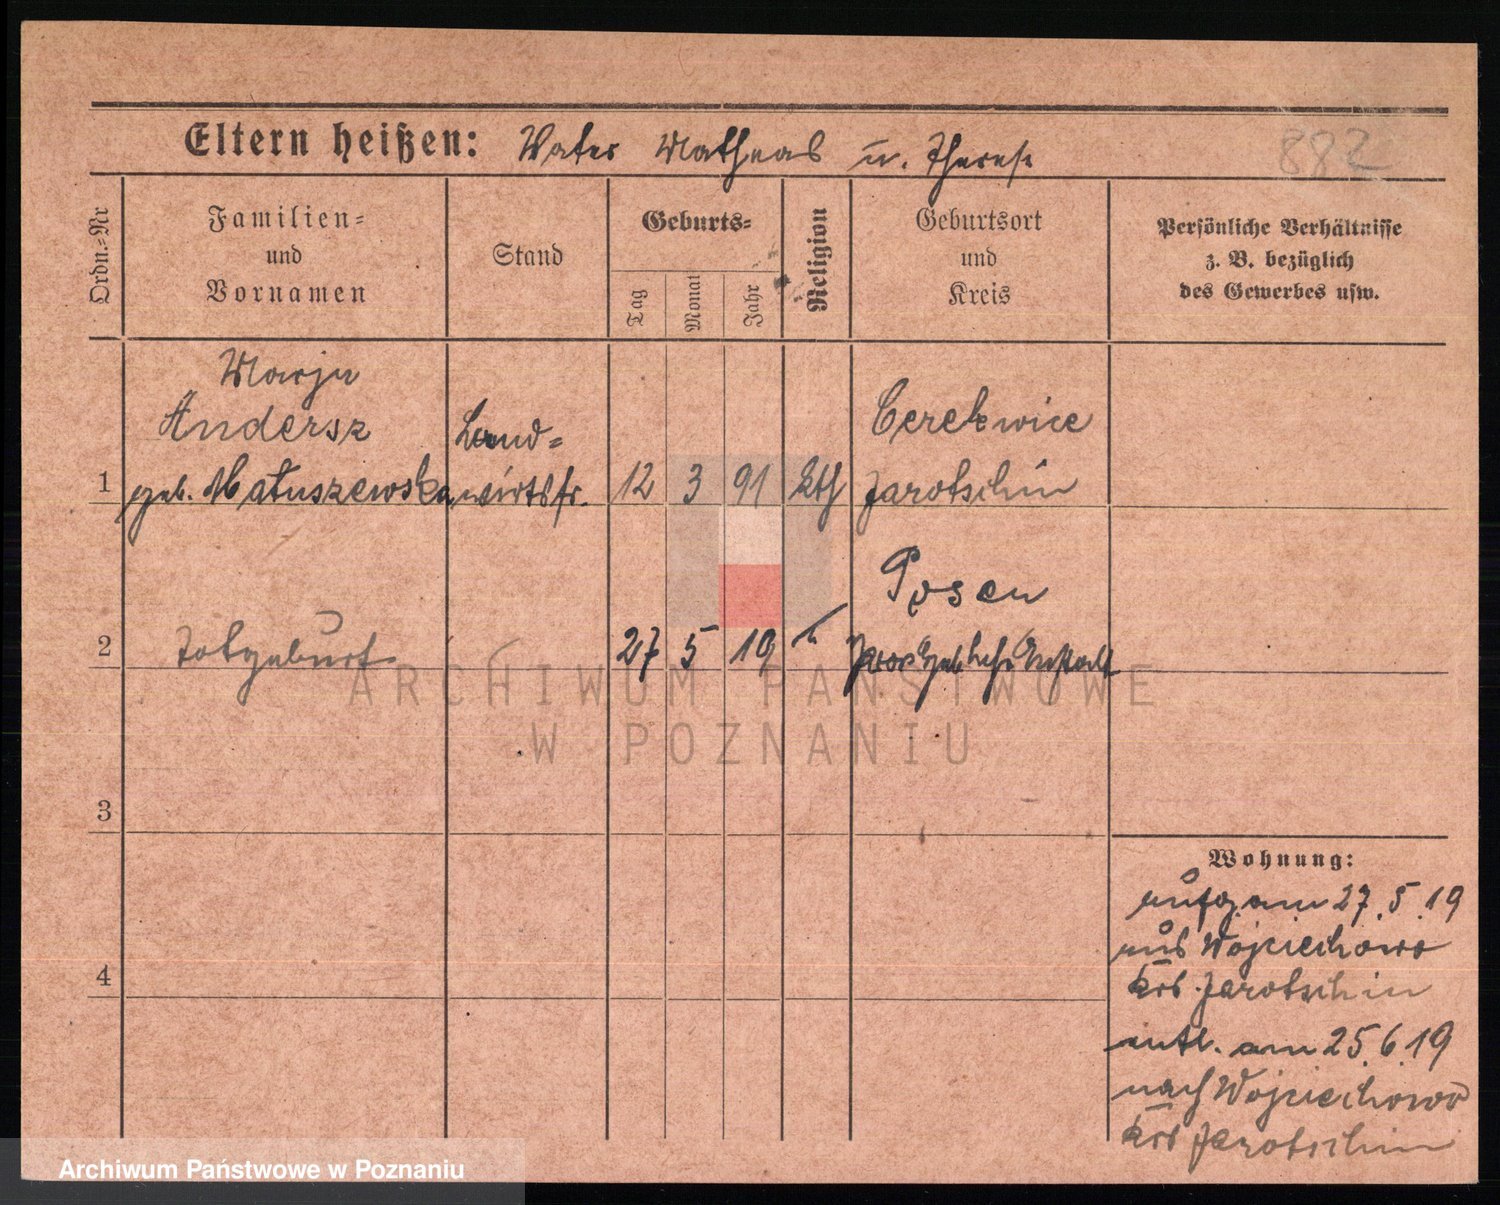 882
Eltern heißen: Vater Matheas u. Therese
Ordn.=Nr
Familien=
und
Vornamen
Stand
Geburts=
Tag
Monat
Jahr
Religion
Geburtsort
und
Kreis
Persönliche Verhältnisse
z. B. bezüglich
des Gewerbes usw.
1
Marja
Andersz
geb. Matuszewska
Land=
wirtsfr.
12 3 91 kth
Cerekwice
Jarotschin
2
Totgeburt
27 5 19
Posen
3
4
Wohnung:
aufg. am 27.5.19
aus Wojciechowo
Krs. Jarotschin
entl. am 25.6.19
nach Wojciechowo
Krs Jarotschin
ARCHIWUM PAŃSTWOWE
W POZNANIU
Archiwum Państwowe w Poznaniu